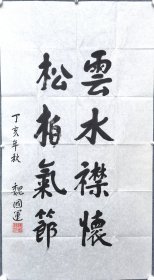 雲水襟懷
松柏氣節
丁亥年秋
魏國運